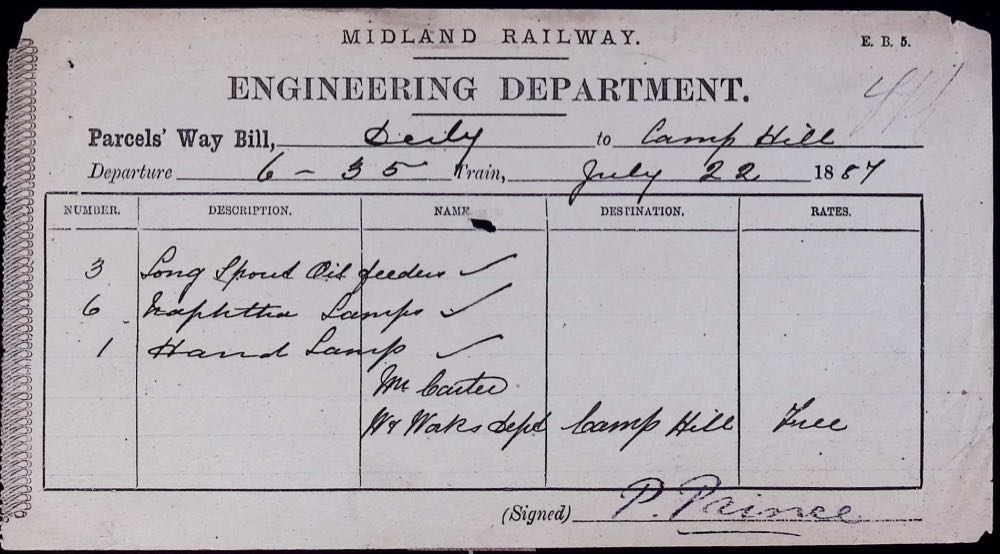 MIDLAND RAILWAY.
E. B. 5.
ENGINEERING DEPARTMENT.
Parcels' Way Bill, Derby to Camp Hill
Departure 6 - 35 Train, July 22 1887
NUMBER. DESCRIPTION. NAME DESTINATION. RATES.
3 Long Spout Oil feeders ✓
6 Naphtha Lamps ✓
1 Hand Lamp ✓
Mr Carter
Wr Works Dept Camp Hill Free
(Signed) P. Prince